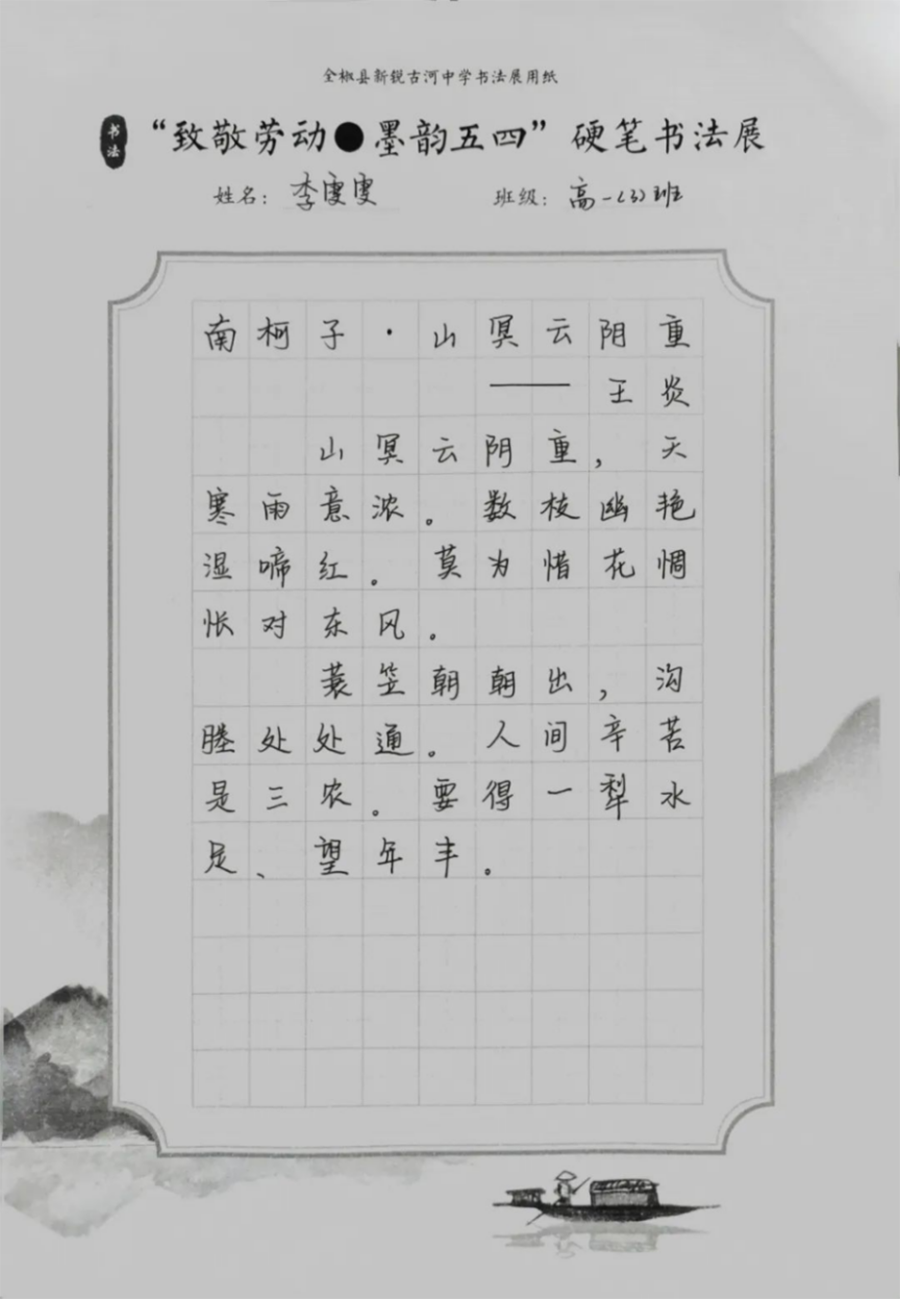 全椒县新锐古河中学书法展用纸
书法
“致敬劳动●墨韵五四”硬笔书法展
姓名：李雯雯 班级：高一(3)班
南柯子·山冥云阳重
——王炎
山冥云阴重，天
寒雨意浓。数枝幽艳
湿啼红。莫为惜花惆
怅对东风。
蓑笠朝朝出，沟
塍处处通。人间辛苦
是三农。要得一犁水
足、望年丰。